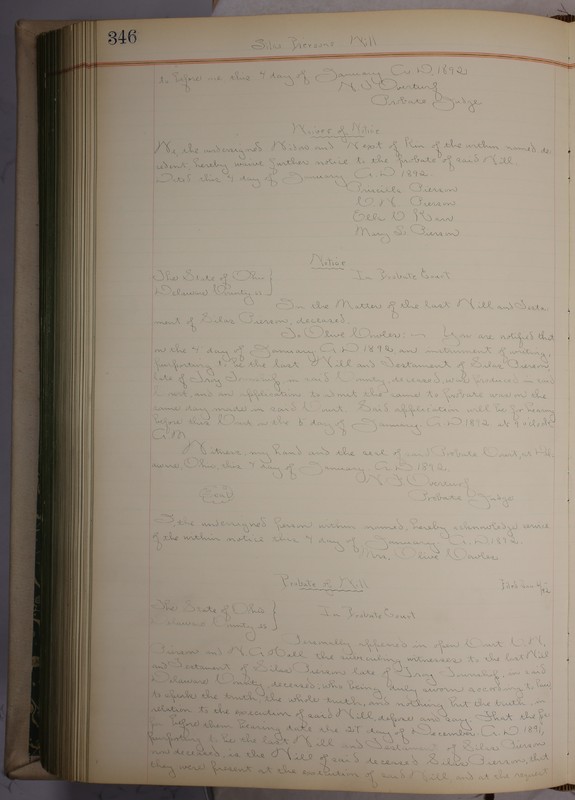 346
Silas Pierson's Will
to before me this 7 day of January A.D. 1892
Probate Judge
Waiver of Notice
We, the undersigned Widow and Next of Kin of the within named de
cedent, hereby waive further notice to the probate of said Will
Dated this 7 day of January A.D. 1892.
Pierson
Pierson
Mary Pierson
Notice
The State of Ohio
Delaware County ss
In Probate Court
In the Matter of the last Will and Testa
ment of Silas Pierson, deceased.
To Olive You are notified that
on the 7 day of January A.D. 1892 an instrument of writing,
purporting to be the last Will and Testament of Silas Pierson,
late of Troy Township, in said County, deceased, was produced in said
Court, and an application to admit the same to probate was on the
same day made in said Court. Said application will be for hearing
before this Court on the day of January, A.D. 1892 at 9 o'clock
A.M.
Witness, my hand and the seal of said Probate Court, at
Ohio, this 7 day of January A.D. 1892.
Seal
Probate Judge
I, the undersigned person within named, hereby acknowledge service
of the within notice this 7 day of January A.D. 1892.
Olive
Probate of Will
The State of Ohio
Delaware County ss
In Probate Court
Personally appeared in open Court
Pierson and the subscribing witnesses to the last Will
and Testament of Silas Pierson late of Troy Township, in said
Delaware County deceased, who being duly sworn according to law
to speak the truth, the whole truth, and nothing but the truth in
relation to the execution of said Will, depose and say: That the pa
per before them bearing date the 28 day of December A.D. 1891,
purporting to be the last Will and Testament of Silas Pierson
now deceased, is the Will of said deceased Silas Pierson, that
they were present at the execution of said Will and at the request